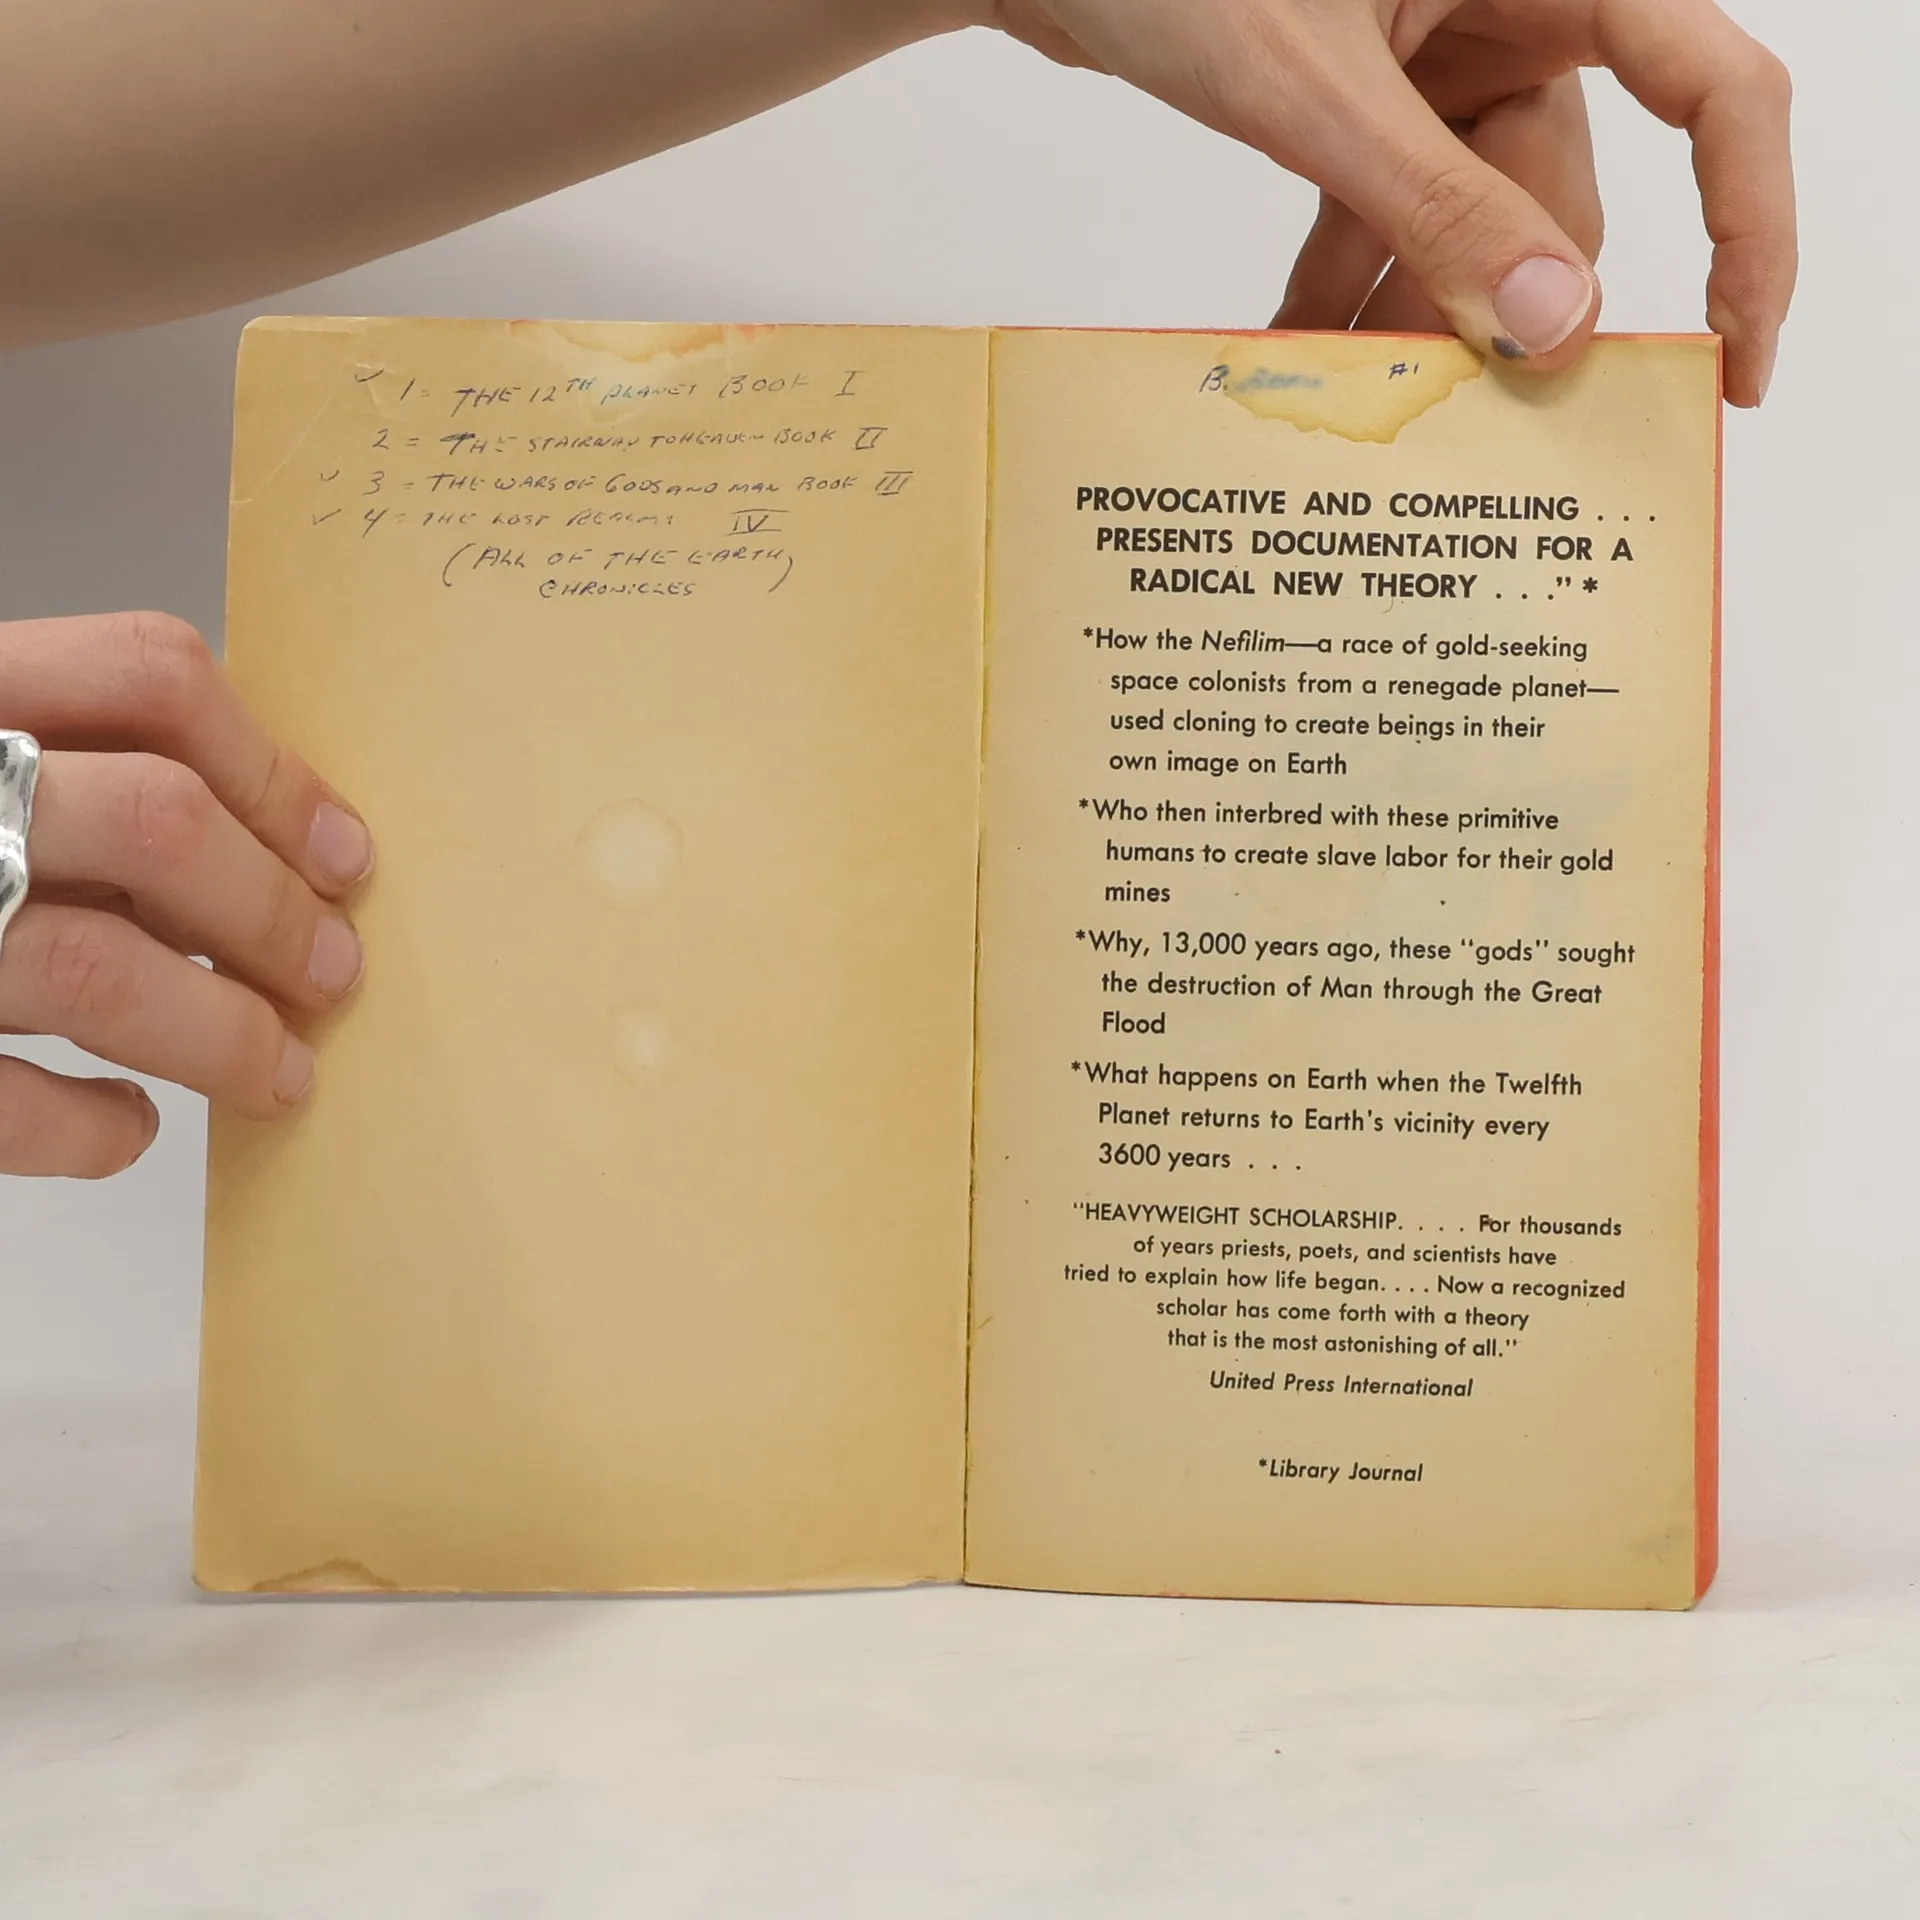 1 = THE 12TH PLANET BOOK I
2 = THE STAIRWAY TO HEAVEN BOOK II
3 = THE WARS OF GODS AND MAN BOOK III
4 = THE LOST REALMS IV
(ALL OF THE EARTH)
CHRONICLES
B. #1
PROVOCATIVE AND COMPELLING . . .
PRESENTS DOCUMENTATION FOR A
RADICAL NEW THEORY . . ." *
*How the Nefilim—a race of gold-seeking
space colonists from a renegade planet—
used cloning to create beings in their
own image on Earth
*Who then interbred with these primitive
humans to create slave labor for their gold
mines
*Why, 13,000 years ago, these "gods" sought
the destruction of Man through the Great
Flood
*What happens on Earth when the Twelfth
Planet returns to Earth's vicinity every
3600 years . . .
"HEAVYWEIGHT SCHOLARSHIP. . . . For thousands
of years priests, poets, and scientists have
tried to explain how life began. . . . Now a recognized
scholar has come forth with a theory
that is the most astonishing of all."
United Press International
*Library Journal